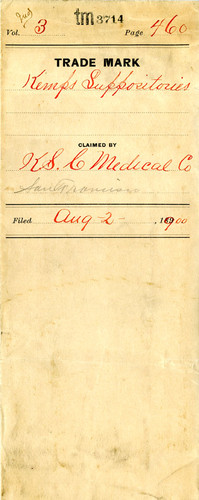 Ind
tm 3714
Vol. 3 Page 460
TRADE MARK
Kemps Suppositories
CLAIMED BY
K. S. C Medical Co
San Francisco
Filed Aug 2 - 1900